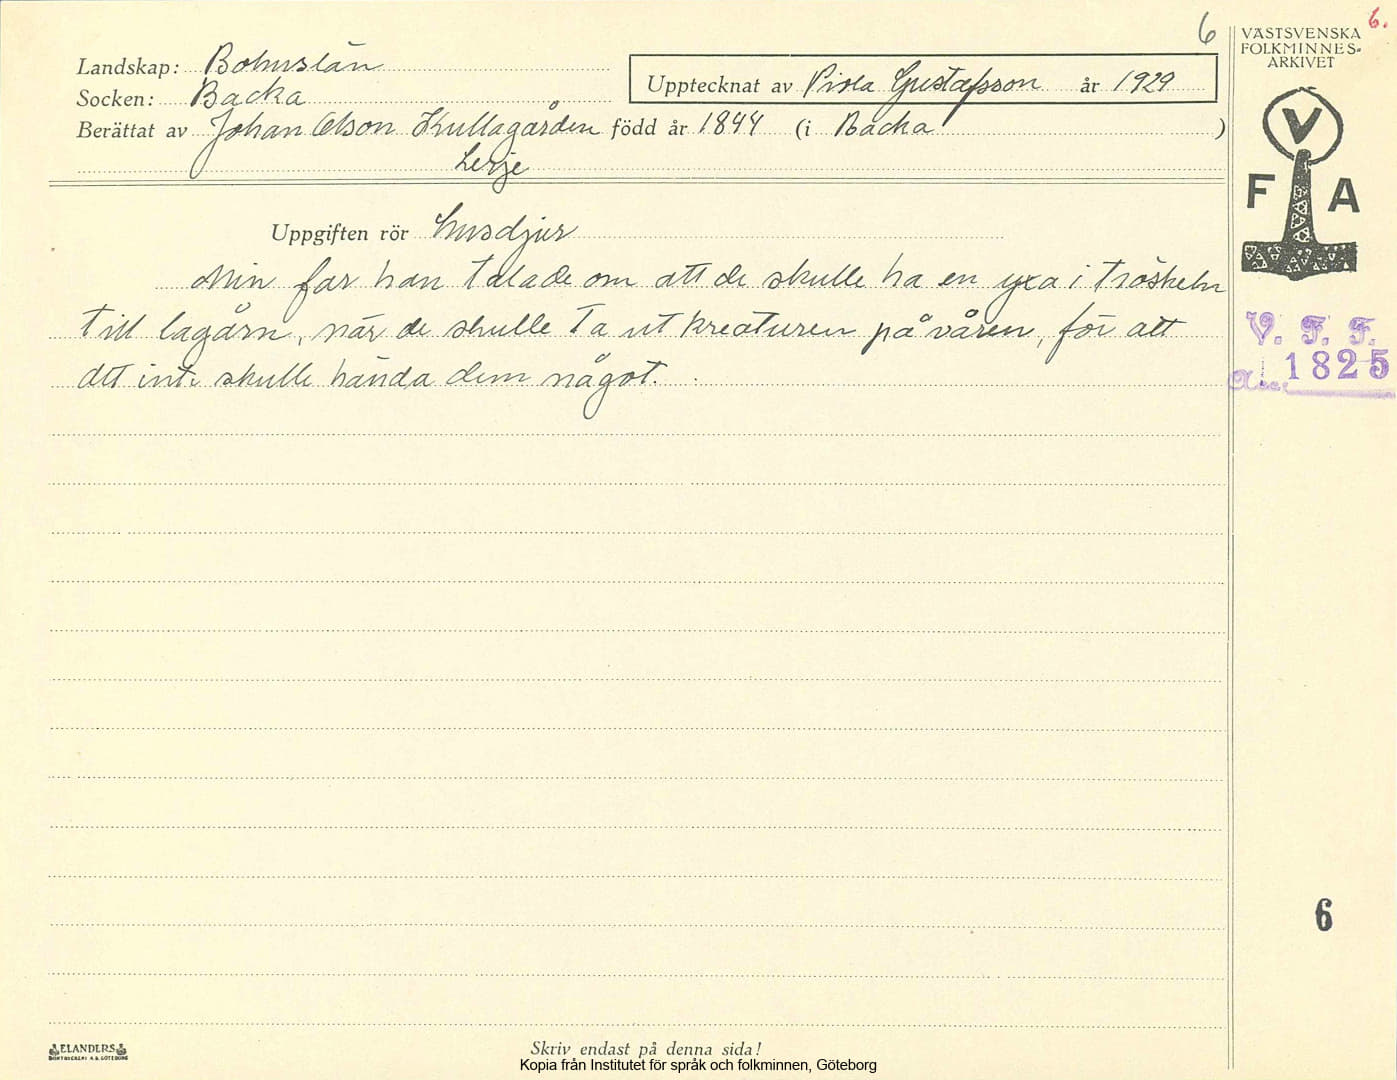 6
6.
VÄSTSVENSKA
FOLKMINNES-
ARKIVET
Landskap: Bohuslän
Upptecknat av Viola Gustafsson år 1929
Socken: Backa
Berättat av Johan Olson Kullagården född år 1844 (i Backa)
Lerje
V
F A
Uppgiften rör Husdjur
Min far han talade om att de skulle ha en yxa i tröskeln
till lagårn, när de skulle ta ut kreaturen på våren, för att
det inte skulle hända dem något.
V. F. F.
Acc. 1825
6
ELANDERS
BOKTRYCKERI A.B. GÖTEBORG
Skriv endast på denna sida!
Kopia från Institutet för språk och folkminnen, Göteborg